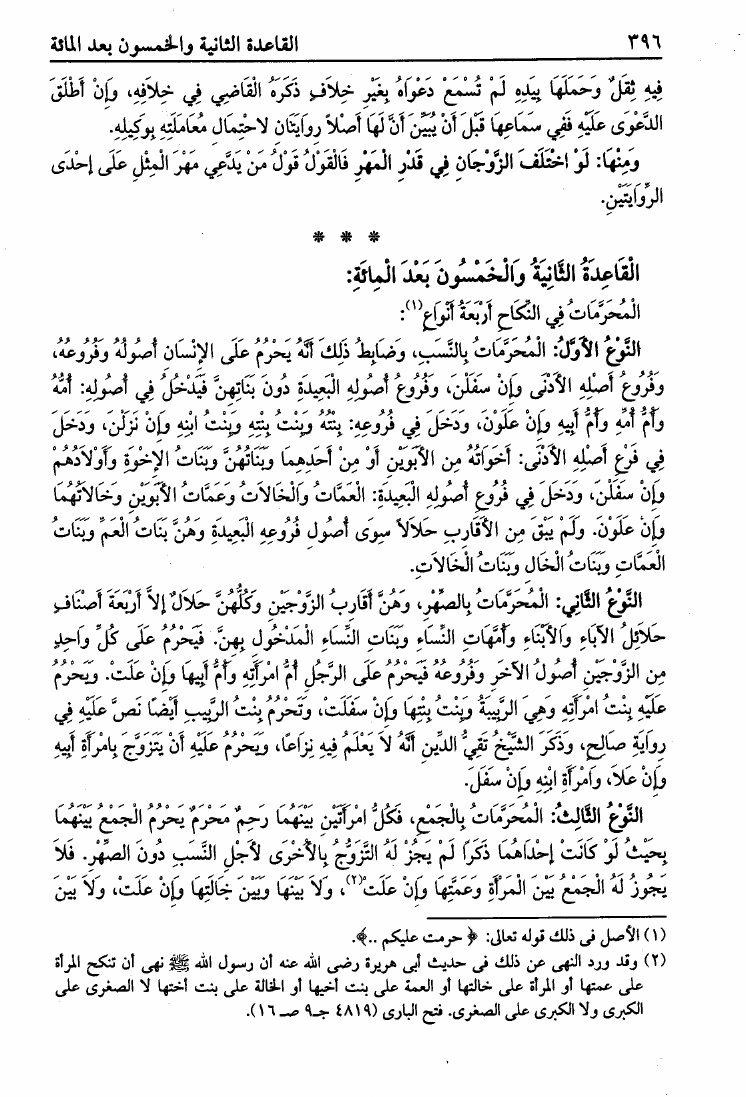 ٣٩٦
القاعدة الثانية والخمسون بعد المائة
فِيهِ ثِقَلٌ وَحَمَلَهَا بِيَدِهِ لَمْ تُسْمَعْ دَعْوَاهُ بِغَيْرِ خِلَافٍ ذَكَرَهُ الْقَاضِي فِي خِلَافِهِ، وَإِنْ أَطْلَقَ
الدَّعْوَى عَلَيْهِ فَفِي سَمَاعِهَا قَبْلَ أَنْ يُبَيِّنَ أَنَّ لَهَا أَصْلاً رِوَايَتَانِ لاحْتِمَالِ مُعَامَلَتِهِ بِوَكِيلِهِ.
وَمِنْهَا: لَوْ اخْتَلَفَ الزَّوْجَانِ فِي قَدْرِ الْمَهْرِ فَالْقَوْلُ قَوْلُ مَنْ يَدَّعِي مَهْرَ الْمِثْلِ عَلَى إحْدَى
الرِّوَايَتَيْنِ.
* * *
الْقَاعِدَةُ الثَّانِيَةُ وَالْخَمْسُونَ بَعْدَ الْمِائَةِ:
الْمُحَرَّمَاتُ فِي النِّكَاحِ أَرْبَعَةُ أَنْوَاعٍ(١):
النَّوْعُ الأَوَّلُ: الْمُحَرَّمَاتُ بِالنَّسَبِ، وَضَابِطُ ذَلِكَ أَنَّهُ يَحْرُمُ عَلَى الإِنْسَانِ أُصُولُهُ وَفُرُوعُهُ،
وَفُرُوعُ أَصْلِهِ الأَدْنَى وَإِنْ سَفَلْنَ، وَفُرُوعُ أُصُولِهِ الْبَعِيدَةِ دُونَ بَنَاتِهِنَّ فَيَدْخُلُ فِي أُصُولِهِ: أُمُّهُ
وَأُمُّ أُمِّهِ وَأُمُّ أَبِيهِ وَإِنْ عَلَوْنَ، وَدَخَلَ فِي فُرُوعِهِ: بِنْتُهُ وَبِنْتُ بِنْتِهِ وَبِنْتُ ابْنِهِ وَإِنْ نَزَلْنَ، وَدَخَلَ
فِي فَرْعِ أَصْلِهِ الأَدْنَى: أَخَوَاتُهُ مِنَ الأَبَوَيْنِ أَوْ مِنْ أَحَدِهِمَا وَبَنَاتُهُنَّ وَبَنَاتُ الإِخْوَةِ وَأَوْلادُهُمْ
وَإِنْ سَفَلْنَ، وَدَخَلَ فِي فُرُوعِ أُصُولِهِ الْبَعِيدَةِ: الْعَمَّاتُ وَالْخَالاتُ وَعَمَّاتُ الأَبَوَيْنِ وَخَالاتُهُمَا
وَإِنْ عَلَوْنَ. وَلَمْ يَبْقَ مِنَ الأَقَارِبِ حَلالاً سِوَى أُصُولِ فُرُوعِهِ الْبَعِيدَةِ وَهُنَّ بَنَاتُ الْعَمِّ وَبَنَاتُ
الْعَمَّاتِ وَبَنَاتُ الْخَالِ وَبَنَاتُ الْخَالاتِ.
النَّوْعُ الثَّانِي: الْمُحَرَّمَاتُ بِالصِّهْرِ، وَهُنَّ أَقَارِبُ الزَّوْجَيْنِ وَكُلُّهُنَّ حَلالٌ إلاَّ أَرْبَعَةَ أَصْنَافٍ
حَلائِلُ الآبَاءِ وَالأَبْنَاءِ وَأُمَّهَاتِ النِّسَاءِ وَبَنَاتِ النِّسَاءِ الْمَدْخُولِ بِهِنَّ. فَيَحْرُمُ عَلَى كُلِّ وَاحِدٍ
مِنَ الزَّوْجَيْنِ أُصُولُ الآخَرِ وَفُرُوعُهُ فَيَحْرُمُ عَلَى الرَّجُلِ أُمُّ امْرَأَتِهِ وَأُمُّ أَبِيهَا وَإِنْ عَلَتْ. وَيَحْرُمُ
عَلَيْهِ بِنْتُ امْرَأَتِهِ وَهِيَ الرَّبِيبَةُ وَبِنْتُ بِنْتِهَا وَإِنْ سَفَلَتْ، وَتَحْرُمُ بِنْتُ الرَّبِيبِ أَيْضًا نَصَّ عَلَيْهِ فِي
رِوَايَةِ صَالِحٍ، وَذَكَرَ الشَّيْخُ تَقِيُّ الدِّينِ أَنَّهُ لا يَعْلَمُ فِيهِ نِزَاعًا، وَيَحْرُمُ عَلَيْهِ أَنْ يَتَزَوَّجَ بِامْرَأَةِ أَبِيهِ
وَإِنْ عَلاَ، وَامْرَأَةِ ابْنِهِ وَإِنْ سَفَلَ.
النَّوْعُ الثَّالِثُ: الْمُحَرَّمَاتُ بِالْجَمْعِ، فَكُلُّ امْرَأَتَيْنِ بَيْنَهُمَا رَحِمٌ مَحْرَمٌ يَحْرُمُ الْجَمْعُ بَيْنَهُمَا
بِحَيْثُ لَوْ كَانَتْ إحْدَاهُمَا ذَكَرًا لَمْ يَجُزْ لَهُ التَّزَوُّجُ بِالأُخْرَى لأَجْلِ النَّسَبِ دُونَ الصِّهْرِ. فَلاَ
يَجُوزُ لَهُ الْجَمْعُ بَيْنَ الْمَرْأَةِ وَعَمَّتِهَا وَإِنْ عَلَتْ(٢)، وَلاَ بَيْنَهَا وَبَيْنَ خَالَتِهَا وَإِنْ عَلَتْ، وَلاَ بَيْنَ
(١) الأصل فى ذلك قوله تعالى: ﴿ حرمت عليكم ..﴾.
(٢) وقد ورد النهى عن ذلك فى حديث أبى هريرة رضى الله عنه أن رسول الله ﷺ نهى أن تنكح المرأة
على عمتها أو المرأة على خالتها أو العمة على بنت أخيها أو الخالة على بنت أختها لا الصغرى على
الكبرى ولا الكبرى على الصغرى. فتح البارى (٤٨١٩ جـ٩ صـ ١٦).